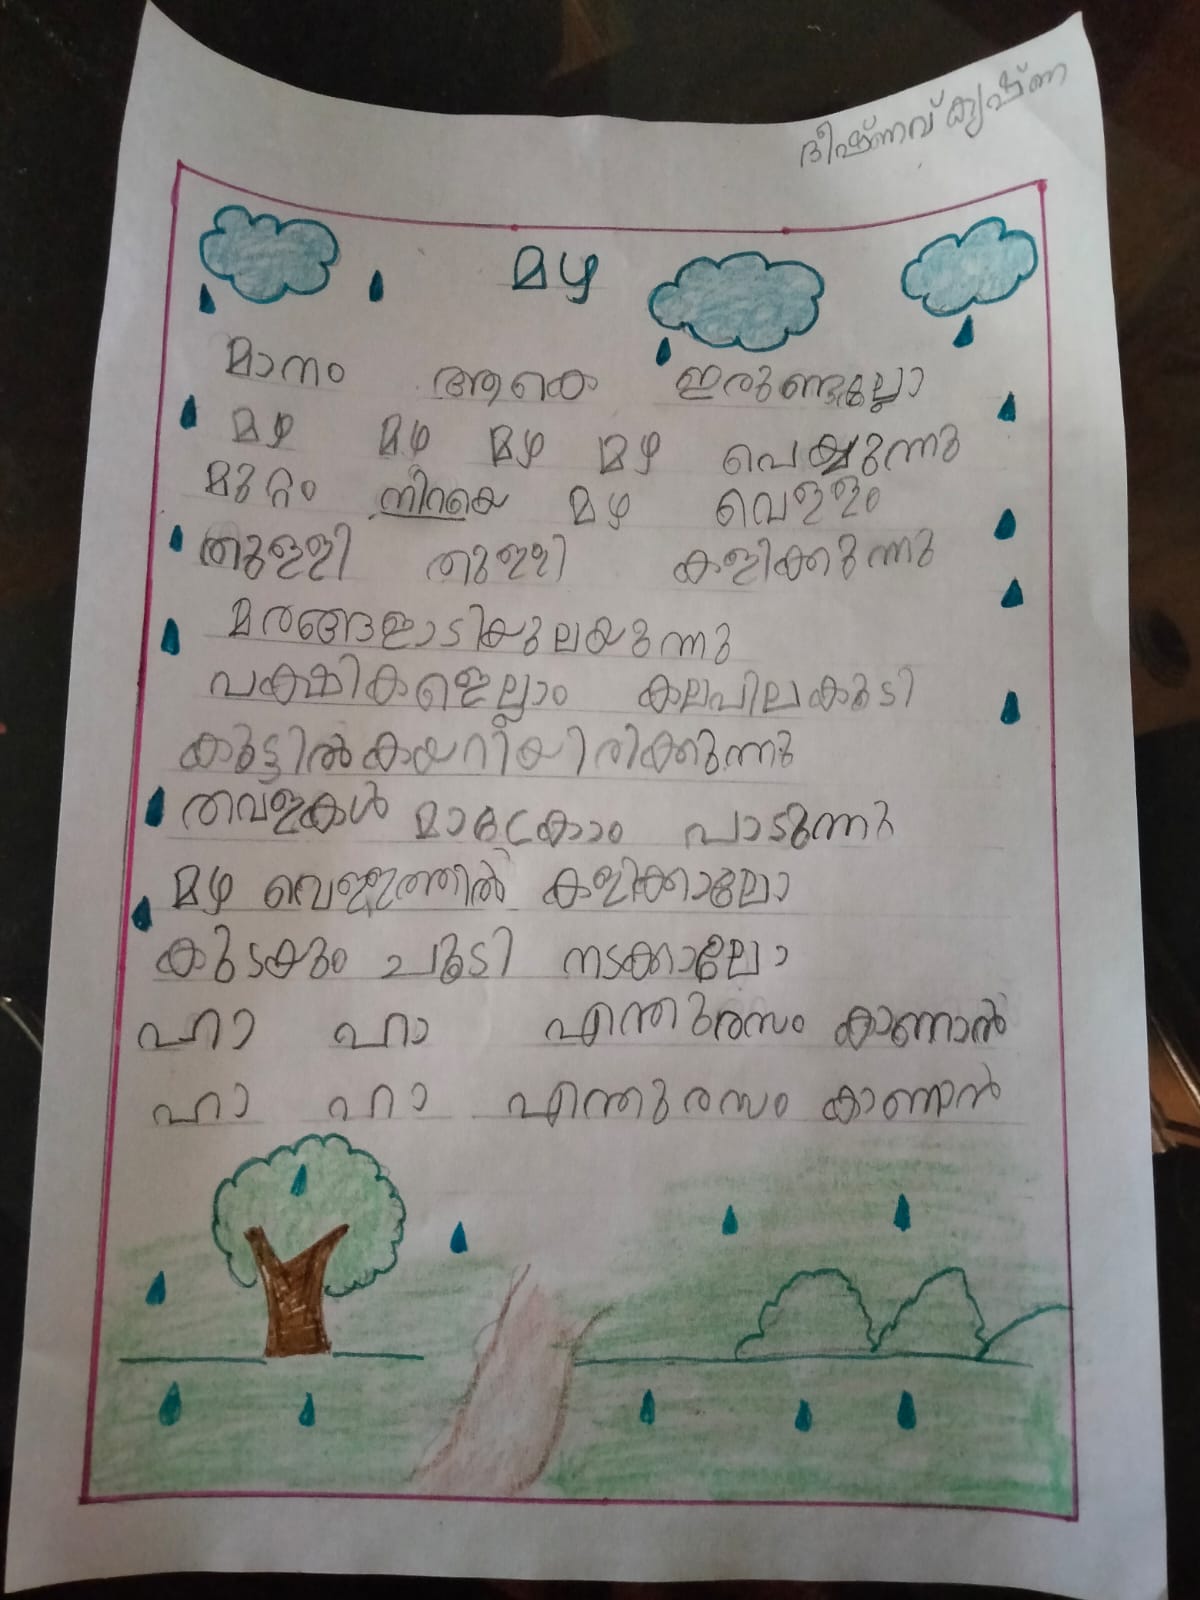 ദീഷ്ണവ് കൃഷ്ണ
മഴ
മാനം ആകെ ഇരുണ്ടല്ലോ
മഴ മഴ മഴ മഴ പെയ്യുന്നു
മുറ്റം നിറയെ മഴ വെള്ളം
തുള്ളി തുള്ളി കളിക്കുന്നു
മരങ്ങളാടിയുലയുന്നു
പക്ഷികളെല്ലാം കലപിലകൂടി
കൂട്ടിൽകയറിയിരിക്കുന്നു
തവളകൾ പാടുന്നു
മഴ വെള്ളത്തിൽ കളിക്കാലോ
കുടയും ചൂടി നടക്കാലോ
ഹാ ഹാ എന്തുരസം കാണാൻ
ഹാ ഹാ എന്തുരസം കാണാൻ